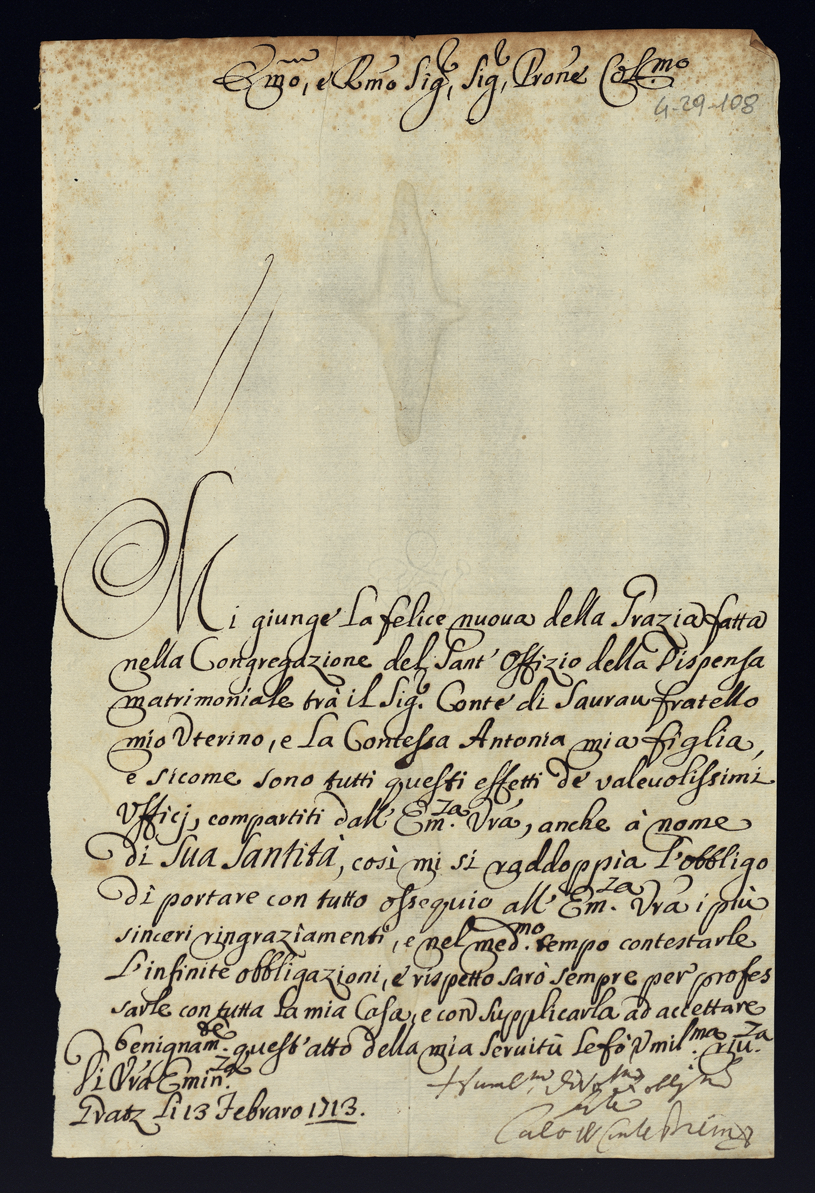 Em̃o, e Rm̃o Sig.r, Sig.r, Prone Col.mo
4-29-108
Mi giunge la felice nuoua della Grazia fatta
nella Congregazione del Sant' Offizio della Dispensa
matrimoniale trà il Sig.r Conte di Saurau fratello
mio Vterino, e la Contessa Antonia mia figlia,
e sicome sono tutti questi effetti de valeuolissimi
Vfficj, compartiti dall' Em.za Vrã, anche à nome
di Sua Santità, così mi si raddoppia l'obbligo
di portare con tutto ossequio all' Em.za Vrã i più
sinceri ringraziamenti, e nel med.mo tempo contestarle
l'infinite obbligazioni, e rispetto sarò sempre per profes
sarle con tutta la mia Casa, e con supplicarla ad accettare
benignam.te quest' atto della mia seruitù le fò Vmil.ma riu.za
Di Vrã Emin.za
Gratz li 13 Febraro 1713.
Humil.mo
Conte